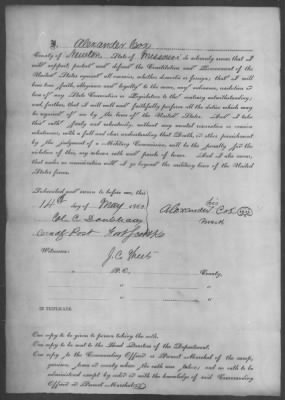 I, Alexander Cox
County of Newton State of Missouri do solemnly swear that I
will support, protect and defend the Constitution and Government of the
United States against all enemies, whether domestic or foreign; that I will
bear true faith, allegiance and loyalty to the same, any ordinance, resolution or
law of any State Convention or Legislature to the contrary notwithstanding;
and further, that I will well and faithfully perform all the duties which may
be required of me by the laws of the United States. And I take
this oath freely and voluntarily, without any mental reservation or evasion
whatsoever, with a full and clear understanding that Death, or other punishment
by the judgment of a Military Commission, will be the penalty for the
violation of this, my solemn oath and parole of honor. And I also swear
that under no consideration will I go beyond the military lines of the United
States forces.
Subscribed and sworn to before me, this
14th day of May 186
his
Alexander Cox
mark
Col C
Comdg Post Fort Scott Ks
Witnesses:
J. C.
P. O. County,
IN DUPLICATE.
One copy to be given to person taking the oath.
One copy to be sent to the Head Quarters of the Department.
One copy to the Commanding Officer or Provost Marshal of the camp,
garrison, town or county where the oath was taken; and no oath to be
administered except by and with the knowledge of said Commanding
Officer or Provost Marshal.